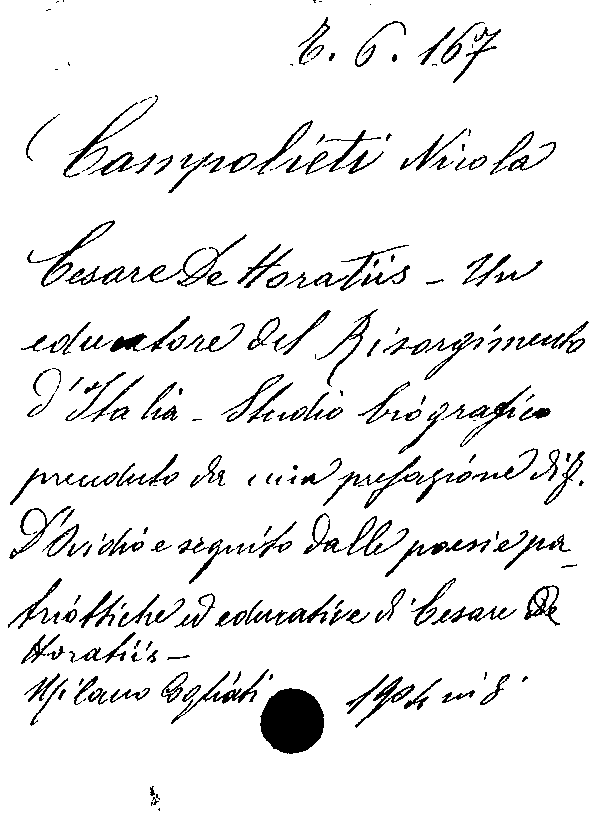 E. 6. 167
Campolieti Nicola
Cesare De Horatiis - Un
educatore del Risorgimento
d'Italia - Studio biografico
preceduto da una prefazione di F.
D'Ovidio e seguito dalle poesie pa_
triottiche ed educative di Cesare De
Horatiis -
Milano Cogliati 1904 in 8°